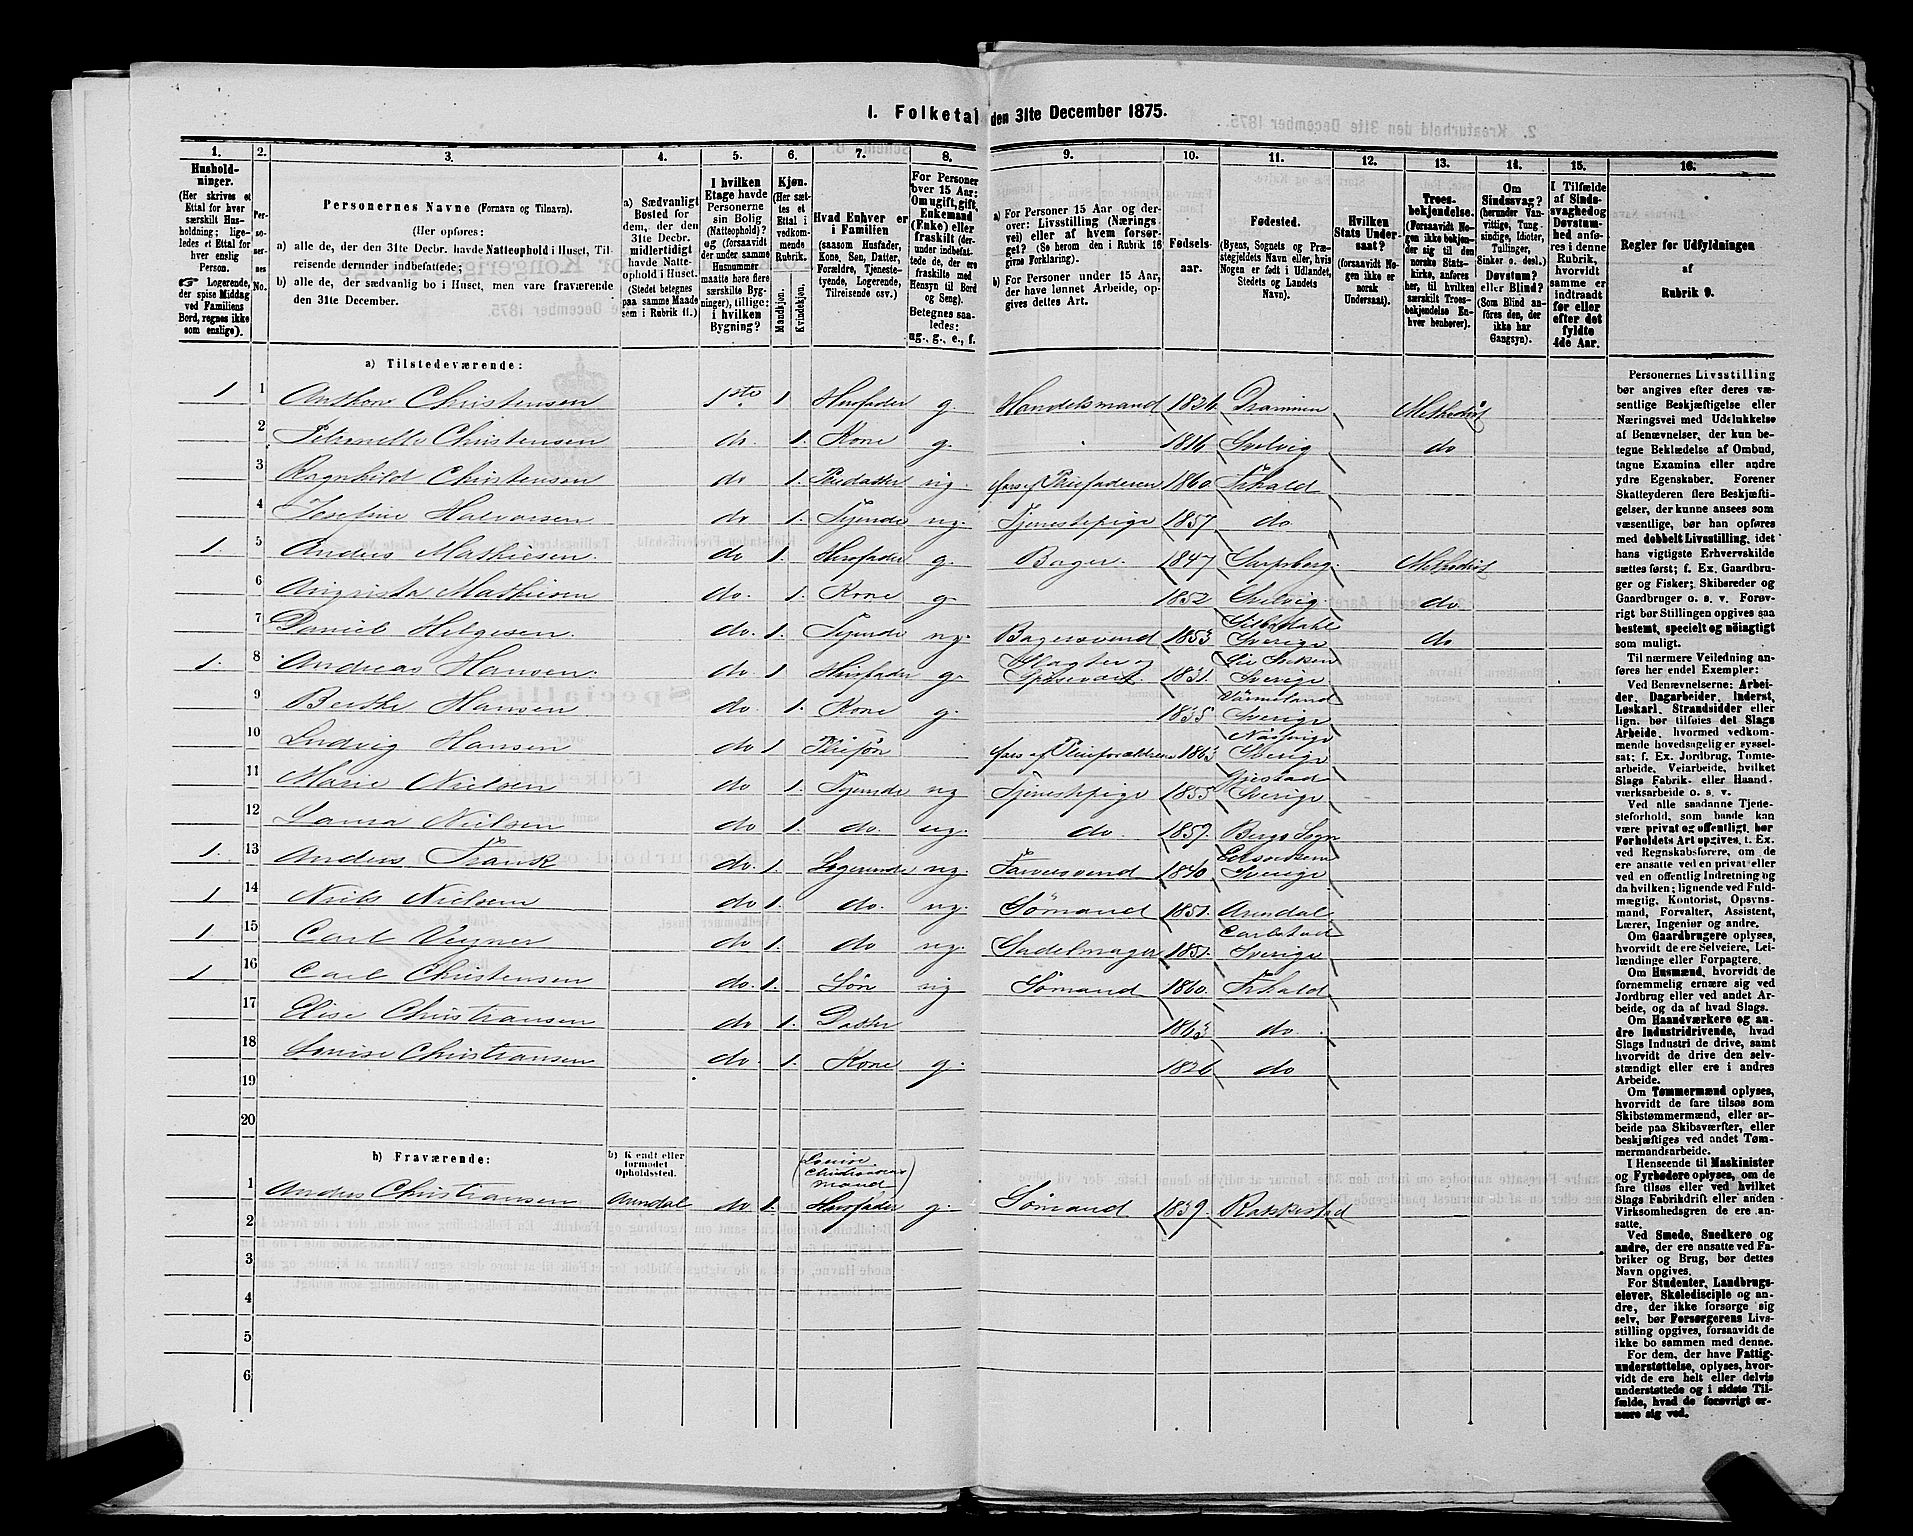 1. Folketal den 31te December 1875.
1.
Hushold-
ninger.
(Her skrives et
Ettal for hver
særskilt Hus-
holdning; lige-
ledes et Ettal for
hver enslig
Person.
Logerende,
der spise Middag
ved Familiens
Bord, regnes ikke
som enslige).
2.
Per-
so-
ner-
nes
No.
3.
Personernes Navne (Fornavn og Tilnavn).
(Her opføres:
a) alle de, der den 31te Decbr. havde Natteophold i Huset, Til-
reisende derunder indbefattede;
b) alle de, der sædvanlig bo i Huset, men vare fraværende
den 31te December.
4.
a) Sædvanligt
Bosted for
dem, der den
31te Decbr.
midlertidigt
havde Natte-
ophold i Huset.
(Stedet betegnes
paa samme Maade
som i Rubrik 11.)
5.
I hvilken
Etage havde
Personerne
sin Bolig
(Natteophold)?
og (forsaavidt
der under samme
Husnummer
maatte høre flere
særskilte Byg-
ninger), tillige:
i hvilken
Bygning?
6.
Kjøn.
(Her sæt-
tes et
Ettal i
vedkom-
mende
Rubrik.
Mandkjøn.
Kvindekjøn.
7.
Hvad Enhver er
i Familien
(saasom Husfader,
Kone, Søn, Datter,
Forældre, Tjeneste-
tyende, Logerende,
Tilreisende osv.)
8.
For Personer
over 15 Aar:
Om ugift, gift,
Enkemand
(Enke) eller
fraskilt (der-
under indbefat-
tede de, der ere
fraskilte med
Hensyn til Bord
og Seng).
Betegnes saa-
ledes:
ug., g., e., f.
9.
a) For Personer 15 Aar og der-
over: Livsstilling (Nærings-
vei) eller af hvem forsør-
get? (Se herom den i Rubrik 16
givne Forklaring).
b) For Personer under 15 Aar,
der have lønnet Arbeide, op-
gives dettes Art.
10.
Fødsels-
aar.
11.
Fødested.
(Byens, Sognets og Præ-
stegjeldets Navn eller, hvis
Nogen er født i Udlandet,
Stedets og Landets
Navn).
12.
Hvilken
Stats Under-
saat?
(forsaavidt No-
gen ikke er
norsk
Undersaat).
13.
Troes-
bekjendelse.
(Forsaavidt No-
gen ikke bekjen-
der sig til den
norske Stats-
kirke, anføres
her, til hvilken
særskilt Troes-
bekjendelse En-
hver henhører).
14.
Om
Sindssvag?
(herunder Van-
vittige, Tung-
sindige, Idioter,
Tullinger,
Sinker o. desl.)
Døvstum?
eller Blind?
(Som Blind an-
føres den, der
ikke har
Gangsyn).
15.
I Tilfælde
af Sinds-
svaghed og
Døvstum-
hed anfø-
res i denne
Rubrik,
hvorvidt
samme er
indtraadt
før eller
efter det
fyldte
4de Aar.
16.
Regler for Udfyldningen
af
Rubrik 9.
a) Tilstedeværende:
1 1 Anthon Christensen 1ste 1 Husfader g. Handelsmand 1826 Drammen Methodist
2 Petronelle Christensen do. 1. Kone g. 1816 Svelvig do
3 Ragnhild Christensen do 1. Pleiedatter ug. fors. af Pleiefaderen 1860. Frhald
4 Josefine Halvorsen do 1. Tyende ug. Tjenestepige 1857. do.
1. 5 Anders Mathiesen do 1. Husfader g. Bager. 1847 Sarpsborg. Methodist
6 Augusta Mathiesen do. 1. Kone g. 1852. Svelvig. do.
7 Daniel Helgesen. do. 1. Tyende ug. Bagersvend 1853 Sverige do
1. 8 Andreas Hansen. do. 1. Husfader g. Slagter og
1831. Sverige
9 Berthe Hansen do. 1. Kone g. 1835 Värmeland
Sverige
10 Ludvig Hansen do 1 Pleisøn fors af Pleieforældrene 1863 Sverige
11 Marie Nielsen do 1. Tyende ug Tjenestepige 1855 Sverige
12 Laura Nielsen do 1. do. ug. do. 1857. Bergs Sogn
1. 13 Anders Frank do. 1. Logerende ug. Farversvend 1840. Sverige
1 14 Niels Nielsen do 1. do. ug. Sømand 1851. Arendal
1. 15 Carl Verner do 1. do ug. Sadelmager 1851. Carlstad
Sverige
1 16 Carl Christensen do. 1. Søn ug Sømand 1860. Frhald
17 Elise Christiansen do 1. Datter 1863 do.
18 Louise Christiansen do. 1. Kone g. 1826 do
19
20
b) Fraværende:
b) Kendt eller
formodet
Opholdssted.
(Louise
Christiansens
Mand)
1 Anders Christiansen Arendal do. 1. Husfader g. Sømand 1839. Rakkestad
2
3
4
5
6
Personernes Livsstilling
bør angives efter deres væ-
sentlige Beskjæftigelse eller
Næringsvei med Udelukkelse
af Benævnelser, der kun be-
tegne Beklædelse af Ombud,
tagne Examina eller andre
ydre Egenskaber. Forener
Skatteyderen flere Beskjæfti-
gelser, der kunne ansees som
væsentlige, bør han opføres
med dobbelt Livsstilling, idet
hans vigtigste Erhvervskilde
sættes først; f. Ex. Gaardbru-
ger og Fisker; Skibsreder og
Gaardbruger o. s. v. Forøv-
rigt bør Stillingen opgives saa
bestemt, specielt og nøiagtigt
som muligt.
Til nærmere Veiledning an-
føres her endel Exempler:
Ved Benævnelserne: Arbei-
der, Dagarbeider, Inderst,
Løskarl, Strandsidder eller
lign. bør tilføies det Slags
Arbeide, hvormed vedkom-
mende hovedsagelig er syssel-
sat; f. Ex. Jordbrug, Tomte-
arbeide, Veiarbeide, hvilket
Slags Fabrik- eller Haand-
værksarbeide o. s. v.
Ved alle saadanne Tjene-
steforhold, som baade kan
være privat og offentligt, bør
Forholdets Art opgives, t. Ex.
ved Regnskabsførere, om de
ere ansatte ved en privat eller
ved en offentlig Indretning og
da hvilken; lignende ved Fuld-
mægtig, Kontorist, Opsyns-
mand, Forvalter, Assistent,
Lærer, Ingeniør og andre.
Om Gaardbrugere oplyses,
hvorvidt de ere Selveiere, Lei-
lændinge eller Forpagtere.
Om Husmænd, hvorvidt de
fornemmelig ernære sig ved
Jordbrug eller ved andet Ar-
beide, og da af hvad Slags.
Om Haandværkere og an-
dre Industridrivende, hvad
Slags Industri de drive, samt
hvorvidt de drive den selv-
stændigt eller ere i andres
Arbeide.
Om Tømmermænd oplyses,
hvorvidt de fare tilsøs som
Skibstømmermænd, eller ar-
beide paa Skibsværfter, eller
beskjæftiges ved andet Tøm-
mermandsarbeide.
I Henseende til Maskinister
og Fyrbødere oplyses, om de
fare tilsøs eller ved hvilket
Slags Fabrikdrift eller anden
Virksomhedsgren de ere an-
satte.
Ved Smede, Snedkere og
andre, der ere ansatte ved Fa-
briker og Brug, bør dettes
Navn opgives.
For Studenter, Landbrugs-
elever, Skoledisciple og an-
dre, der ikke forsørge sig
selv, bør Forsørgerens Livs-
stilling opgives, forsaavidt de
ikke bo sammen med denne.
For dem, der have Fattig-
understøttelse, oplyses, hvor-
vidt de ere helt eller delvis
understøttede og i sidste Til-
fælde, hvad de forøvrigt er-
nære sig ved.